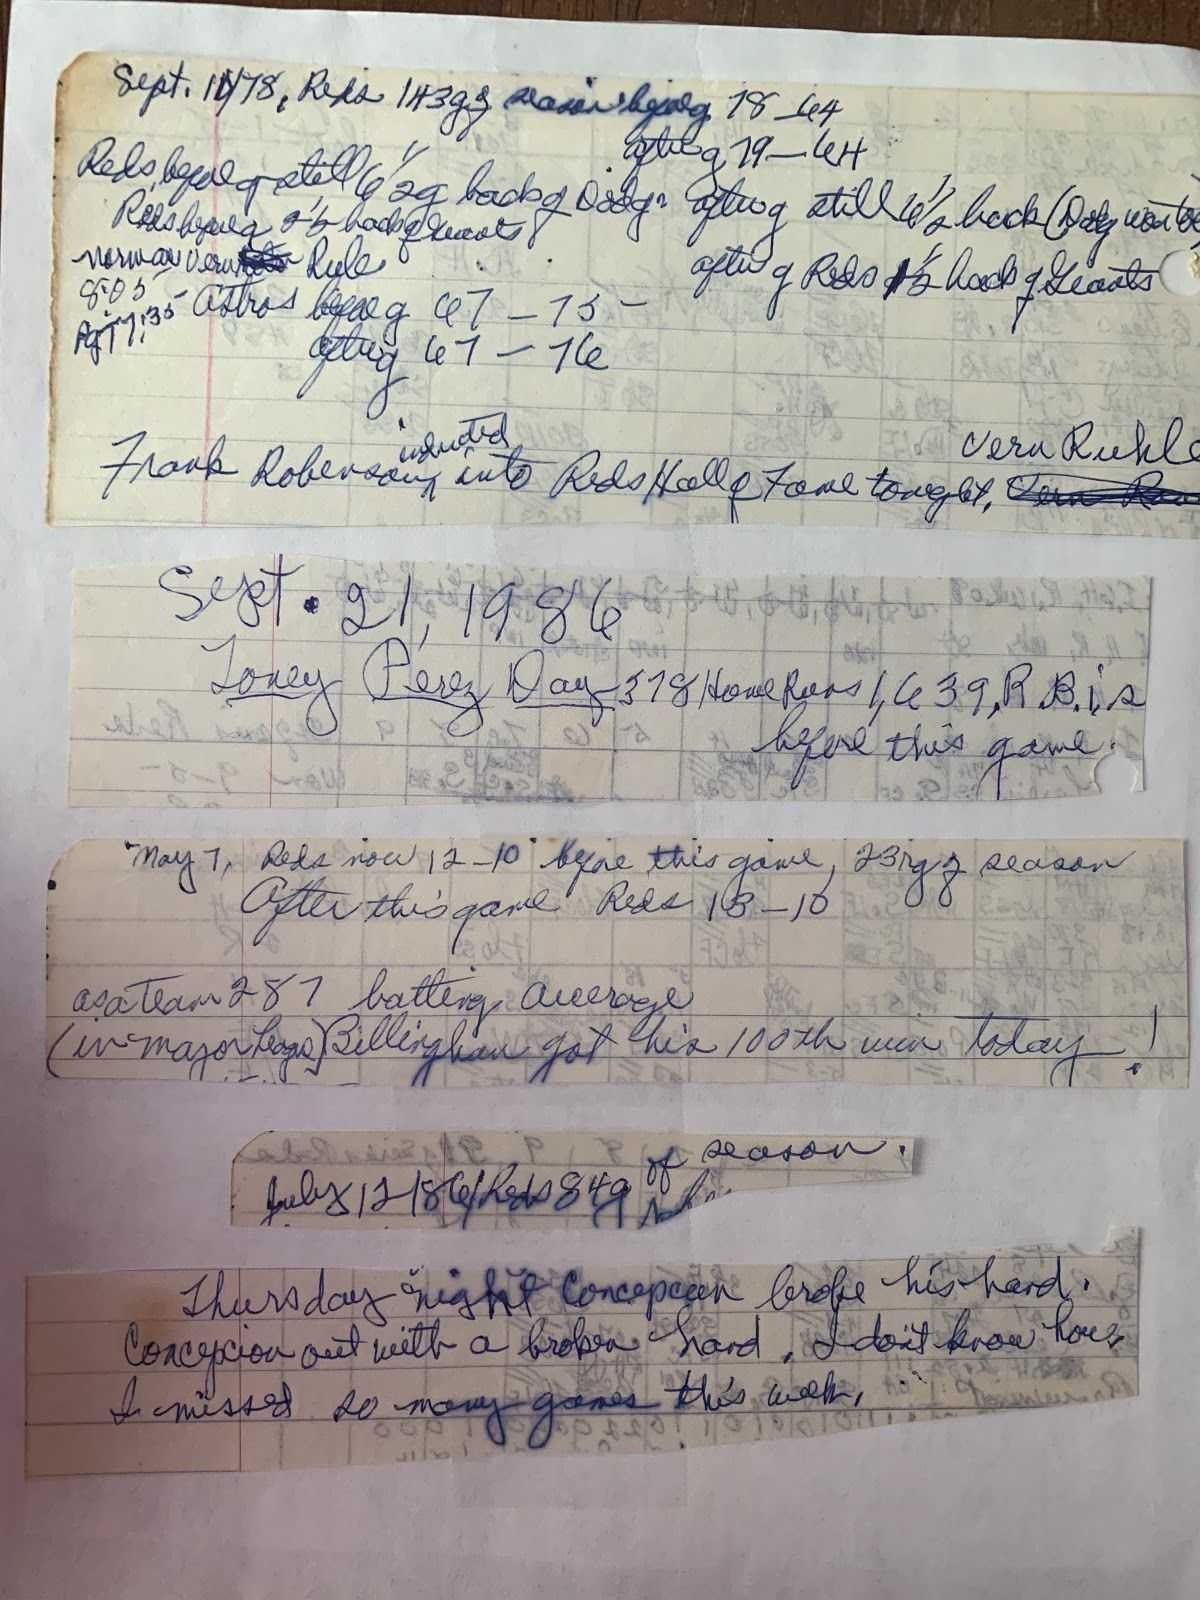 Sept. 11/78, Reds 143 g of season before g 78-64
after g 79-64
Reds before g still 6 1/2 g back of Dodg. after g still 6 1/2 back (Dodg won too
Reds before g 2 1/2 back of Giants
after g Reds 1 1/2 back of Giants
Norman Vern Rule
8:05- Astros before g 67-75-
7:35- after g 67-76
Frank Robenson inducted into Reds Hall of Fame tonight, Vern Ruhle
Sept. 21, 1986
Toney Perez Day 378 Home Runs 1,639, R.B.i,s
before this game.
May 7, Reds now 12-10 before this game, 23rg of season
After this game Reds 13-10
as a team 287 batting average
(in major Leags) Billingham got his 100th win today!
of season.
July 12/86/Reds 84g
Thursday "night" Concepcion broke his hand.
Concepcion out with a broken hand, I don't know how
I missed so many games this week.